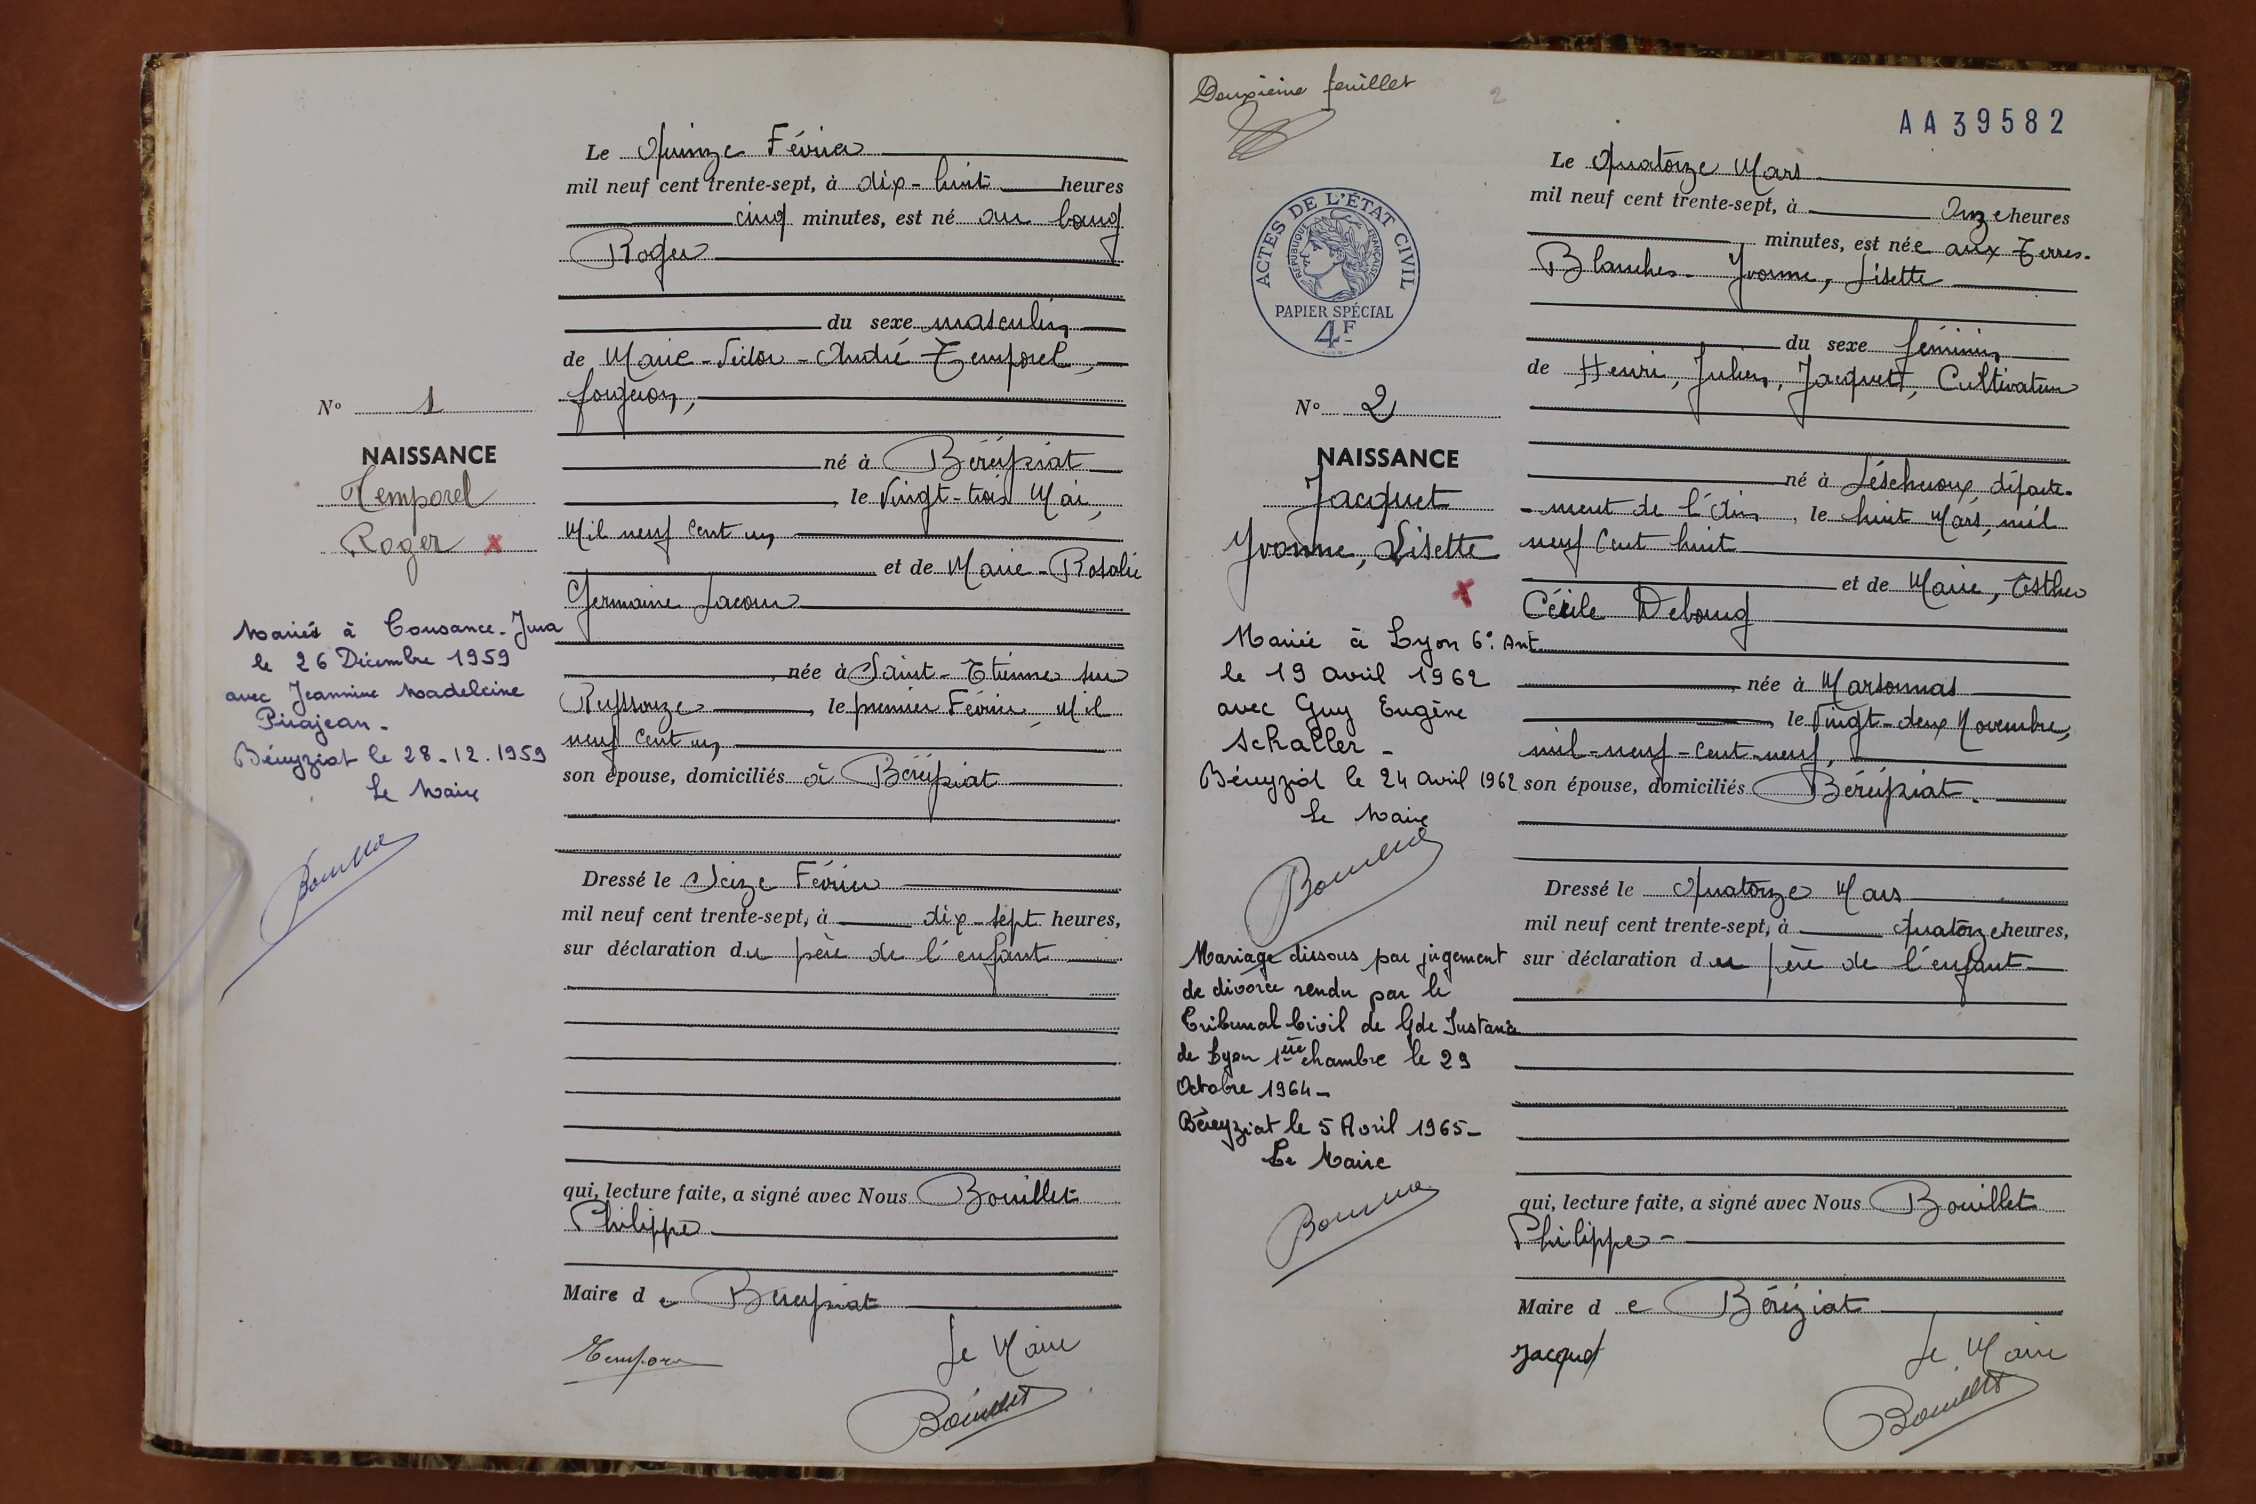 Le Quinze Février
mil neuf cent trente-sept, à dix-huit heures
cinq minutes, est né au bourg
Roger
du sexe masculin
de Marie-Victor-André Temporel,
forgeron,
né à Béréyziat
, le Vingt-trois Mai,
Mil neuf cent un
et de Marie-Rosalie
Germaine Jacour
, née à Saint-Etienne sur
Reyssouze, le premier Février, Mil
neuf cent un
son épouse, domiciliés à Béréyziat
Dressé le Seize Février
mil neuf cent trente-sept, à dix-sept heures,
sur déclaration du père de l'enfant
qui, lecture faite, a signé avec Nous Bouillet
Philippe
Maire de Béreyziat
Le Maire
Bouillet
N° 1
NAISSANCE
Temporel
Roger x
Mariés à Cousance-Jura
le 26 Décembre 1959
avec Jeannine Madeleine
Pirajean-
Béreyziat le 28.12.1959
Le Maire
Deuxième feuillet
2
AA39582
ACTES DE L'ÉTAT CIVIL
RÉPUBLIQUE FRANÇAISE
PAPIER SPÉCIAL
4F
Le Quatorze Mars
mil neuf cent trente-sept, à Onze heures
minutes, est née aux Terres-
Blanches- Yvonne, Lisette
du sexe féminin
de Henri, Julien, Jacquet, Cultivateur
né à Lescheroux, départe-
-ment de l'Ain, le huit Mars, mil
neuf cent huit
et de Marie, Esther
Cécile Debourg
, née à Marsonnas
, le Vingt-deux Novembre,
mil-neuf-cent-neuf,
son épouse, domiciliés Béréyziat.
Dressé le Quatorze Mars
mil neuf cent trente-sept, à Quatorze heures,
sur déclaration du père de l'enfant
qui, lecture faite, a signé avec Nous Bouillet
Philippe-
Maire de Béréziat
Jacquet
Le Maire
Bouillet
N° 2
NAISSANCE
Jacquet
Yvonne, Lisette
x
Mariée à Lyon 6° Ant
le 19 avril 1962
avec Guy Eugène
Schaller-
Béreyziat le 24 avril 1962
Le Maire
Mariage dissous par jugement
de divorce rendu par le
Tribunal Civil de Gde Instance
de Lyon 1ère chambre le 29
Octobre 1964-
Béreyziat le 5 Avril 1965-
Le Maire